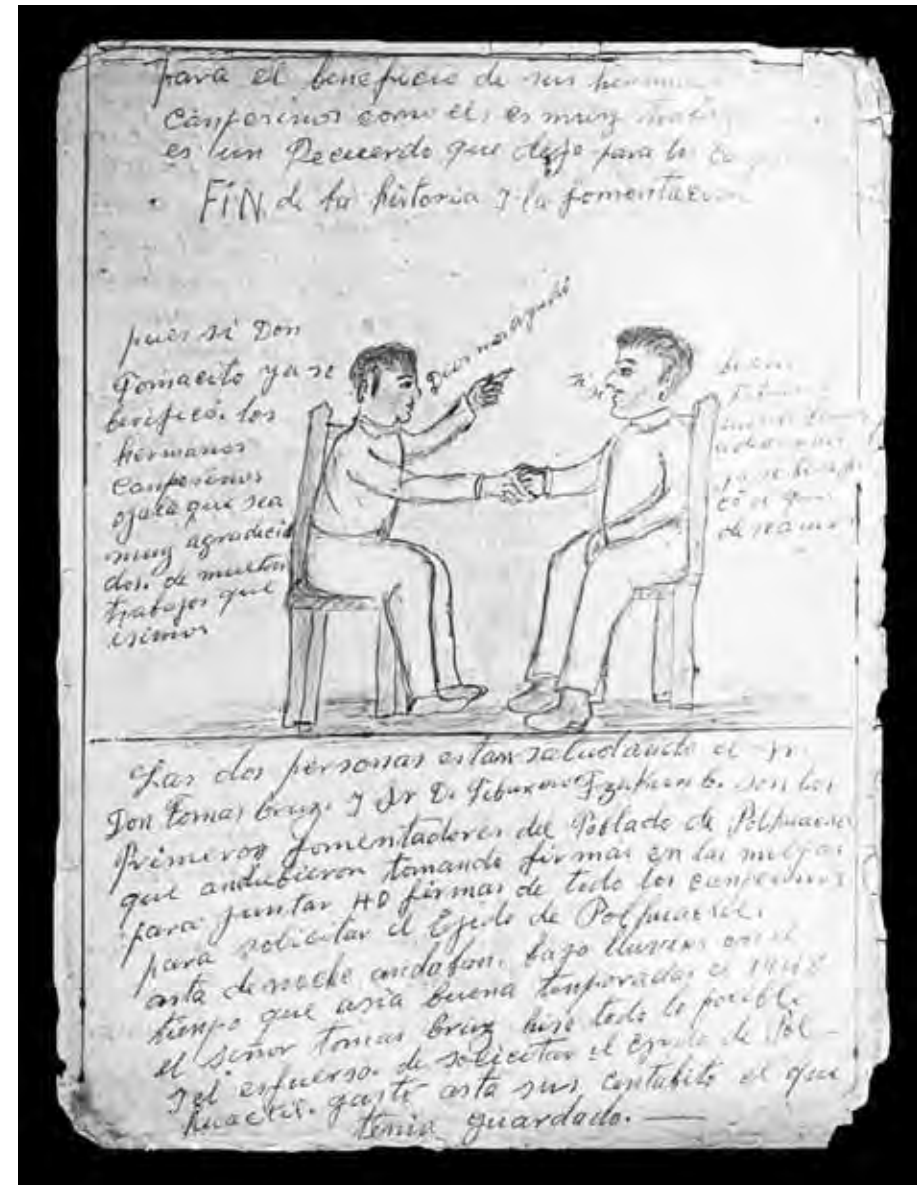 para el beneficio de sus
Canpesinos como el, es muy
es un Recuerdo que dejo para los
FIN de la historia y la fomentacion
pues si Don
Tomacito ya se
berificó. los
hermanos
Canpesinos
ojala que sea
muy agradeci
dos. de muchos
trabajos que
isimos
Dios nos ayudó
si si
ya se berifi
có lo que
deseamos
Las dos personas estan saludando el Sr.
Don Tomas Cruz. y Sr D. son los
Primeros fomentadores del Poblado de Polhuacxil
que andubieron tomando firmas en las milpas
para juntar 40 firmas de todo los canpesinos
para solicitar el Egido de Polhuacxil.
asta de noche andaban. bajo lluvias en el
tiempo que asia buena tenporadas el 1948
el señor tomas Cruz hiso todo lo posible
y el esfuerso. de solicitar el egido de Pol-
huacxil. gastó asta sus centabito el que
tenia guardado.